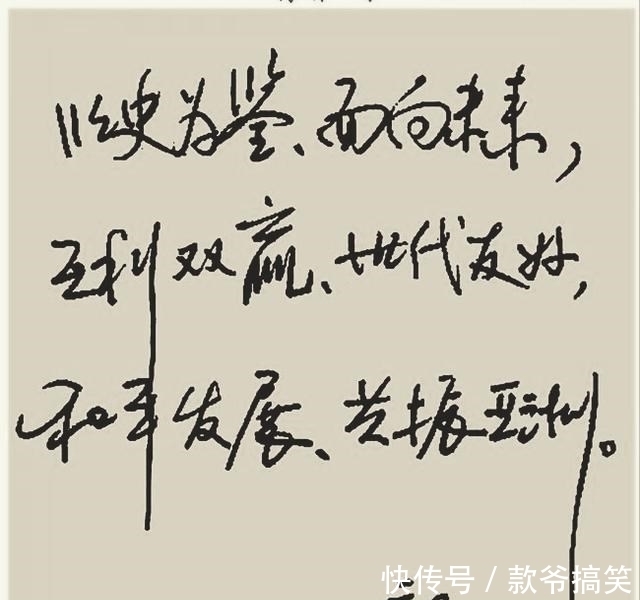 以史为鉴、面向未来,
互利双赢、世代友好,
和平发展、共振亚洲。
快传号 / 款爷搞笑